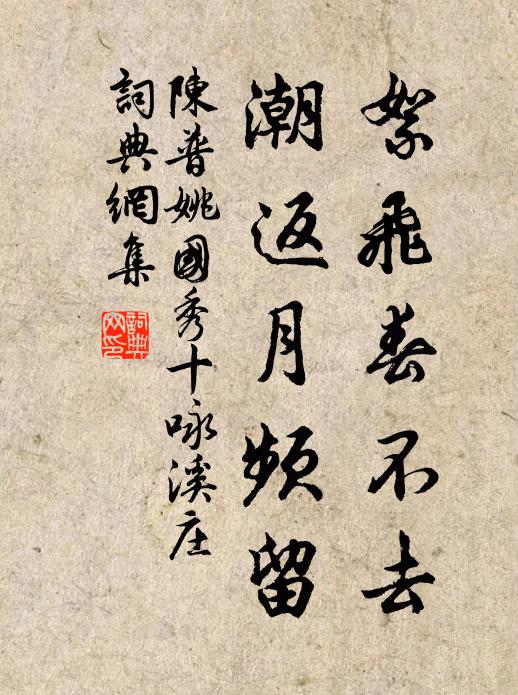 絮飛春不去
潮返月頻留
陳普姚國秀十咏溪庄
詞典網集
詞典網印